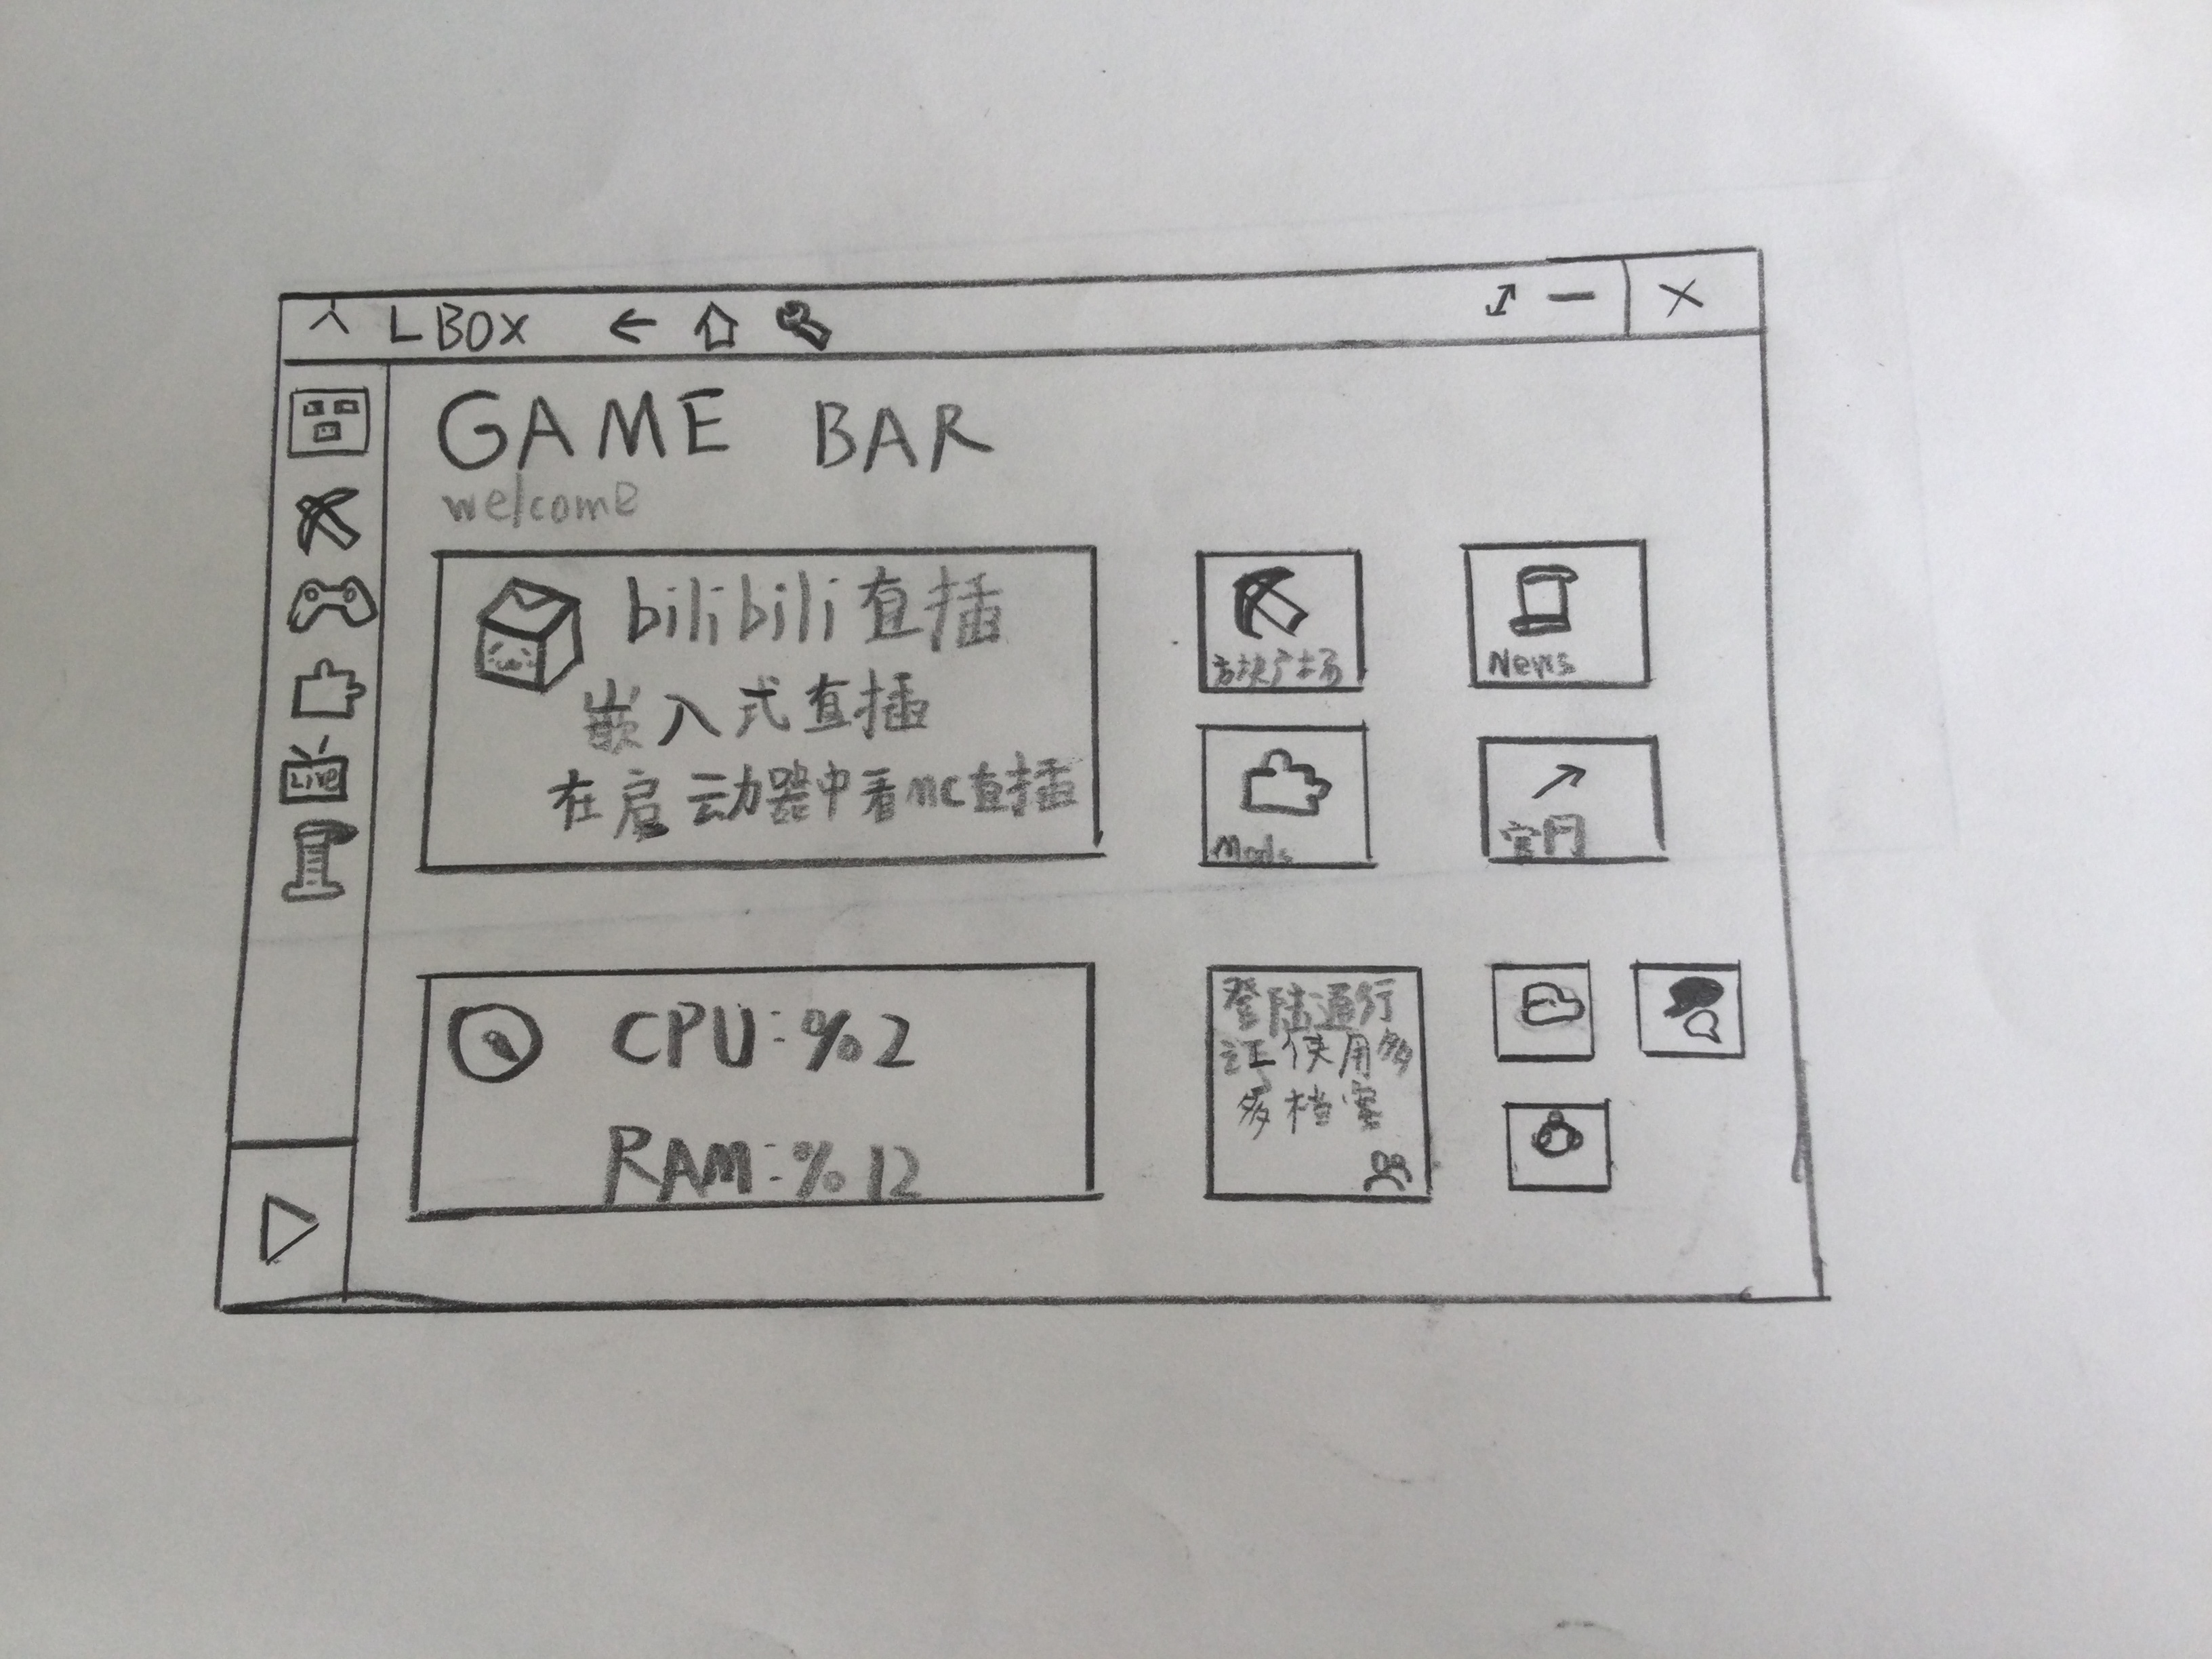 LBOX
GAME BAR
welcome
bilibili直插
嵌入式直插
在启动器中看mc直插
方块广场
News
Mods
官门
Live
CPU:%2
RAM:%12
登陆通行
证使用多
多档案